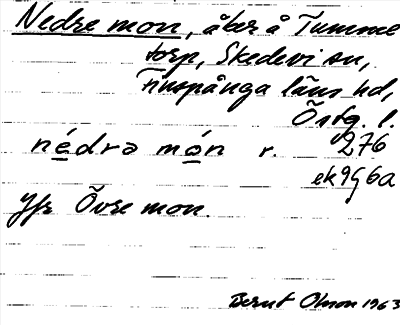 Nedre mon, åker å Tumme
torp, Skedevi sn,
Finspånga läns hd,
Östg. l.
nédrə món r. 276
ek 9g6a
Jfr Övre mon.
Bernt Olsson 1963